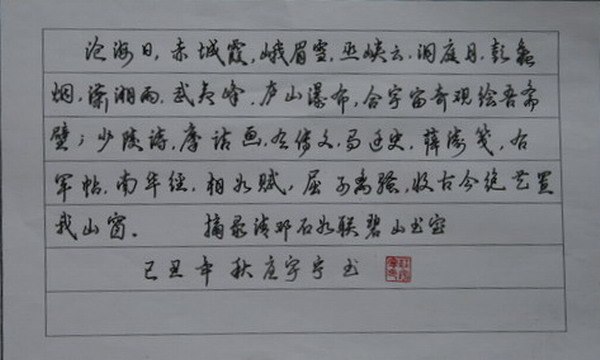 沧海日,赤城霞,峨眉雪,巫峡云,洞庭月,彭蠡
烟,潇湘雨,武夷峰,庐山瀑布,合宇宙奇观绘吾斋
壁;少陵诗,摩诘画,左传文,马迁史,薛涛笺,右
军帖,南华经,相如赋,屈子离骚,收古今绝艺置
我山窗。 摘录清邓石如联碧山书屋
己丑年秋 宇宇书